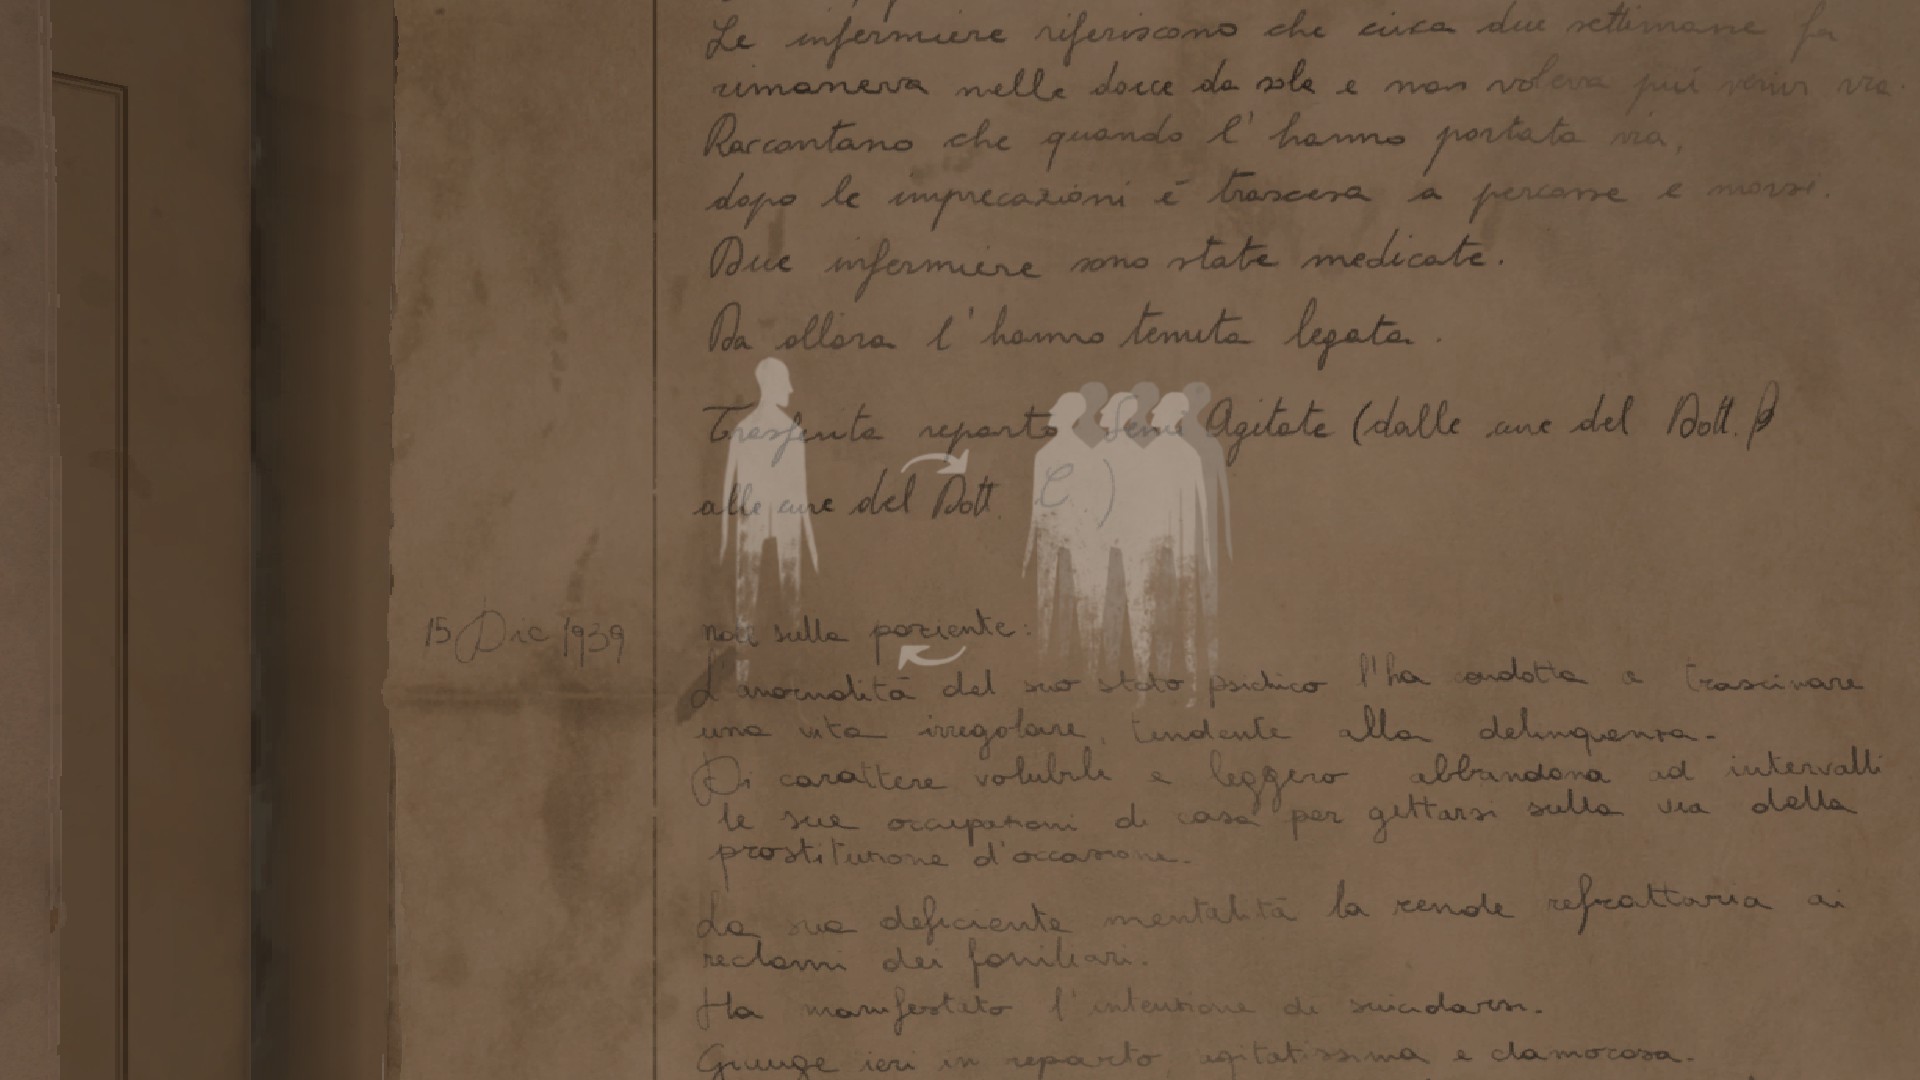 Le infermiere riferiscono che circa due settimane fa
rimaneva nelle docce da sola e non voleva più venir via.
Raccontano che quando l'hanno portata via,
dopo le imprecazioni è trascesa a percosse e morsi.
Due infermiere sono state medicate.
Da allora l'hanno tenuta legata.
Trasferita reparto Semi Agitate (dalle cure del Dott. B
alle cure del Dott. C)
15 Dic 1939
note sulla paziente:
L'anormalità del suo stato psichico l'ha condotta a trascinare
una vita irregolare, tendente alla delinquenza.
Di carattere volubile e leggero abbandona ad intervalli
le sue occupazioni di casa per gettarsi sulla via della
prostituzione d'occasione.
La sua deficiente mentalità la rende refrattaria ai
reclami dei familiari.
Ha manifestato l'intenzione di suicidarsi.
Giunge ieri in reparto agitatissima e clamorosa.